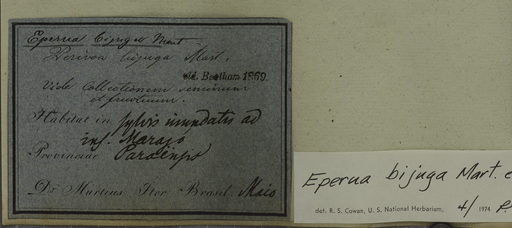 Eperua bijuga Mart
Parivoa bijuga Mart.
vid. Bentham 1869.
Vide Collectionem seminum
et fructuum.
Habitat in sylvis inundatis ad
ins. Marajó
Provinciae Paraensis
Dr. Martius Iter Brasil. Maio
Eperua bijuga Mart.
det. R. S. Cowan, U. S. National Herbarium, 4/ 1974